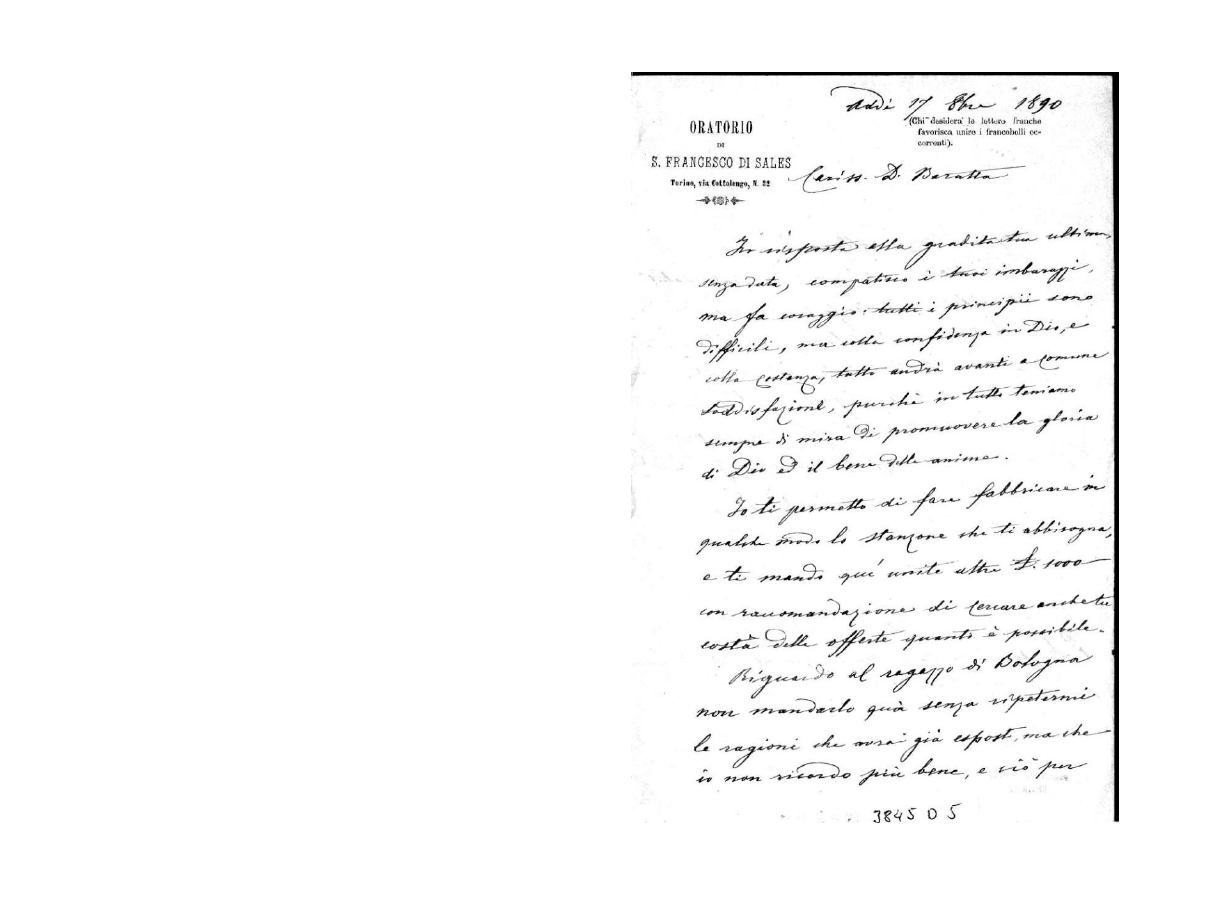 Addì 17 8bre 1890
(Chi desidera le lettere franche
favorisca unire i francobolli oc-
correnti).
ORATORIO
DI
S. FRANCESCO DI SALES
Torino, via Cottolengo, N. 32
Cariss. D. Baratta
In risposta alla gradita tua ultima
senza data, compatisco i tuoi imbarazzi,
ma fa coraggio: tutti i principii sono
difficili, ma colla confidenza in Dio, e
colla costanza, tutto andrà avanti a comune
soddisfazione, purchè in tutto teniamo
sempre di mira di promuovere la gloria
di Dio ed il bene delle anime.
Io ti permetto di fare fabbricare in
qualche modo lo stanzone che ti abbisogna,
e ti mando quì unite altre £. 1000
con raccomandazione di cercare anche tu
costà delle offerte quanto è possibile.
Riguardo al ragazzo di Bologna
non mandarlo quà senza ripetermi
le ragioni che avrai già esposte, ma che
io non ricordo più bene, e ciò per
3845 D 5